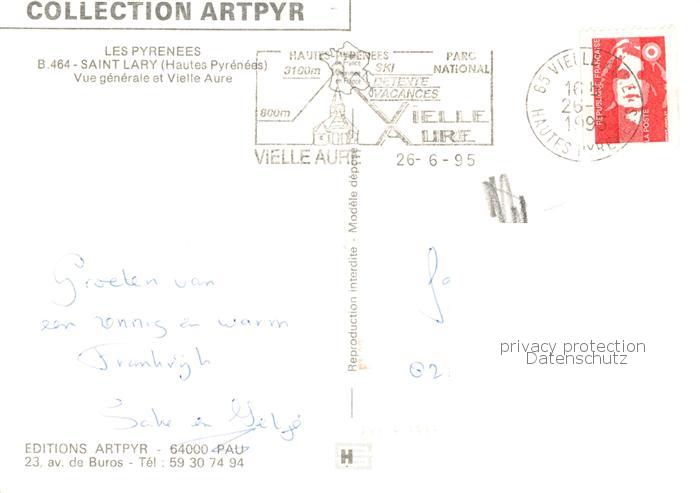 COLLECTION ARTPYR
LES PYRENEES
B.464 - SAINT LARY (Hautes Pyrénées)
Vue générale et Vielle Aure
HAUTES-PYRENEES
PARC
NATIONAL
3100m
SKI
DETENTE
VACANCES
800m
VIELLE
AURE
VIELLE AURE
26-6-95
65 VIELLE
16
26-
199
HAUTES PYRE
REPUBLIQUE FRANCAISE
LA POSTE
Reproduction interdite - Modèle déposé
Groeten van
een zonnig en warm
Frankrijk
privacy protection
Datenschutz
EDITIONS ARTPYR - 64000 PAU
23, av. de Buros - Tél : 59 30 74 94
H